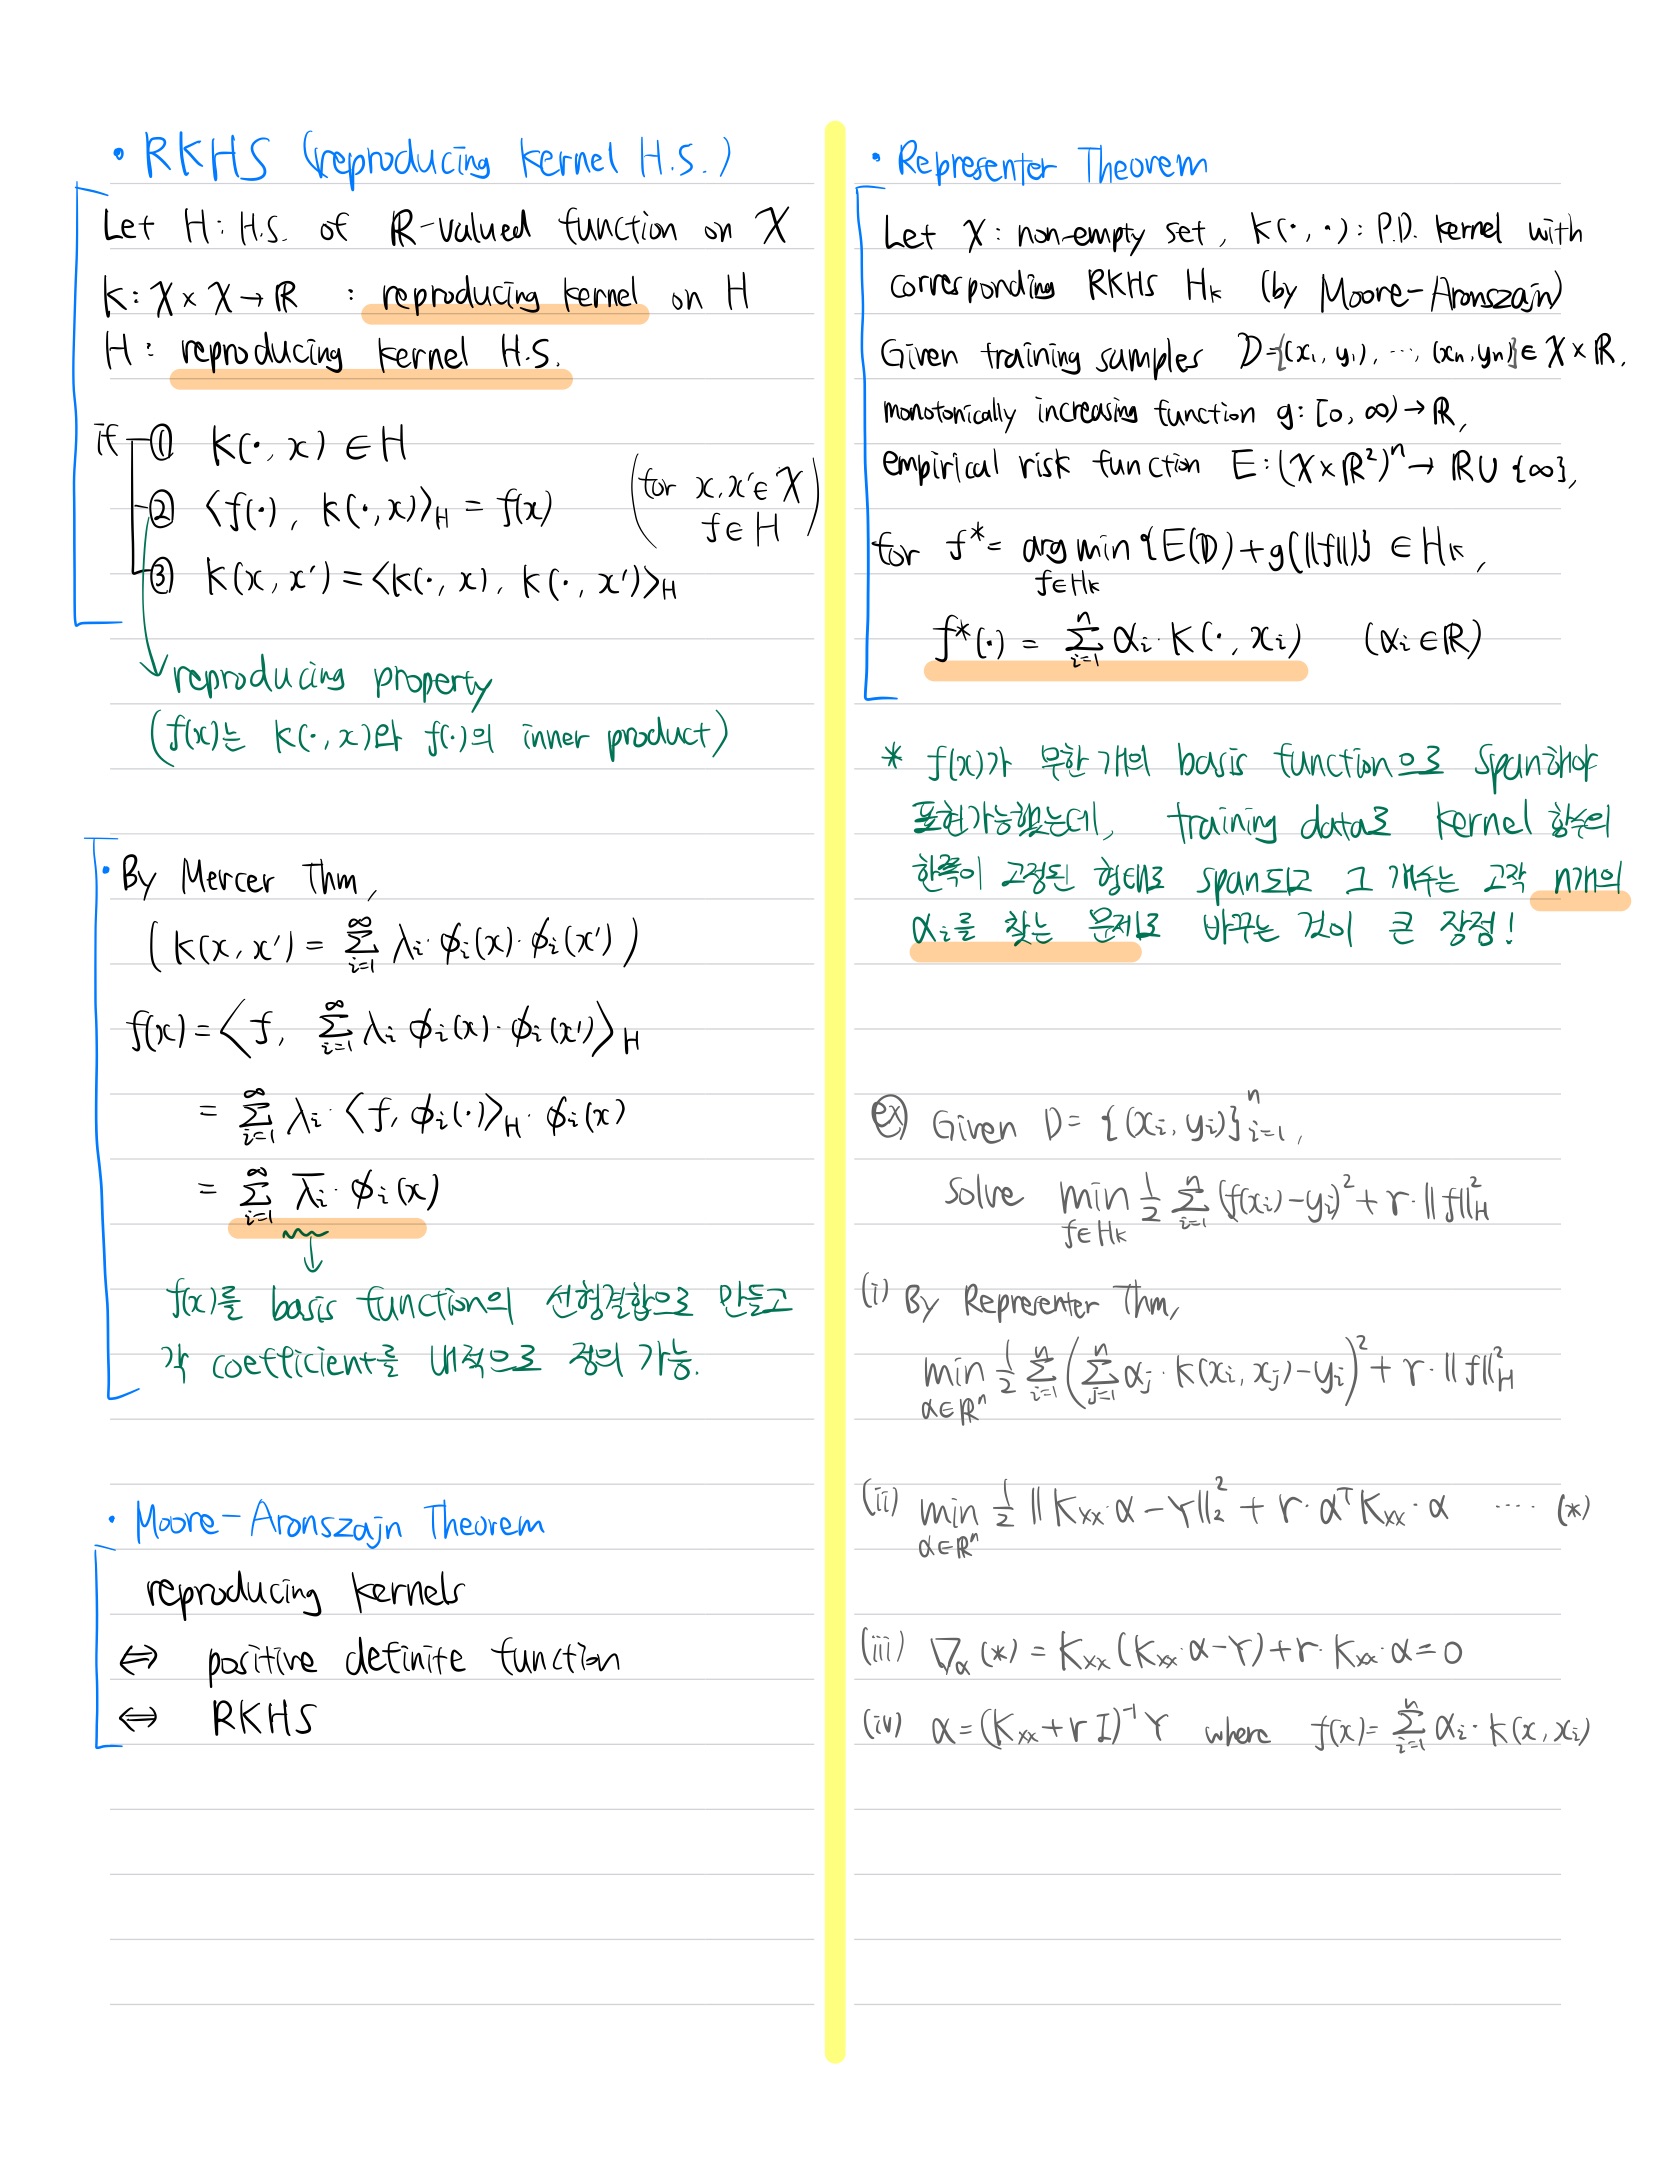 • RKHS (reproducing kernel H.S.)
Let H : H.S. of ℝ-valued function on 𝒳
k : 𝒳 × 𝒳 → ℝ : reproducing kernel on H
H : reproducing kernel H.S.
if ① k(·, x) ∈ H
② ⟨f(·), k(·, x)⟩_H = f(x) (for x, x' ∈ 𝒳 f ∈ H)
③ k(x, x') = ⟨k(·, x), k(·, x')⟩_H
reproducing property
(f(x)는 k(·, x)와 f(·)의 inner product)
• By Mercer Thm,
(k(x, x') = Σ_{i=1}^∞ λ_i · ϕ_i(x) · ϕ_i(x'))
f(x) = ⟨f, Σ_{i=1}^∞ λ_i ϕ_i(x) · ϕ_i(x')⟩_H
= Σ_{i=1}^∞ λ_i · ⟨f, ϕ_i(·)⟩_H · ϕ_i(x)
= Σ_{i=1}^∞ λ̄_i · ϕ_i(x)
f(x)를 basis function의 선형결합으로 만들고
각 coefficient를 내적으로 정의 가능.
• Moore-Aronszajn Theorem
reproducing kernels
⇔ positive definite function
⇔ RKHS
• Representer Theorem
Let 𝒳 : non-empty set, k(·, ·) : P.D. kernel with
corresponding RKHS H_k (by Moore-Aronszajn)
Given training samples D = {(x_1, y_1), ..., (x_n, y_n)} ∈ 𝒳 × ℝ,
monotonically increasing function g : [0, ∞) → ℝ,
empirical risk function E : (𝒳 × ℝ²)^n → ℝ ∪ {∞},
for f* = arg min_{f∈H_k} {E(D) + g(‖f‖)} ∈ H_k,
f*(·) = Σ_{i=1}^n α_i · k(·, x_i) (α_i ∈ ℝ)
* f(x)가 무한 개의 basis function으로 span해야
표현가능했는데, training data로 kernel 함수의
한쪽이 고정된 형태로 span되고 그 개수는 고작 n개의
α_i를 찾는 문제로 바꾸는 것이 큰 장점!
ex) Given D = {(x_i, y_i)}_{i=1}^n,
Solve min_{f∈H_k} 1/2 Σ_{i=1}^n (f(x_i) - y_i)² + r · ‖f‖²_H
(i) By Representer Thm,
min_{α∈ℝ^n} 1/2 Σ_{i=1}^n (Σ_{j=1}^n α_j · k(x_i, x_j) - y_i)² + r · ‖f‖²_H
(ii) min_{α∈ℝ^n} 1/2 ‖K_xx · α - Y‖²_2 + r · α^T K_xx · α ···· (*)
(iii) ∇_α (*) = K_xx (K_xx · α - Y) + r · K_xx · α = 0
(iv) α = (K_xx + r I)^{-1} Y where f(x) = Σ_{i=1}^n α_i · k(x, x_i)